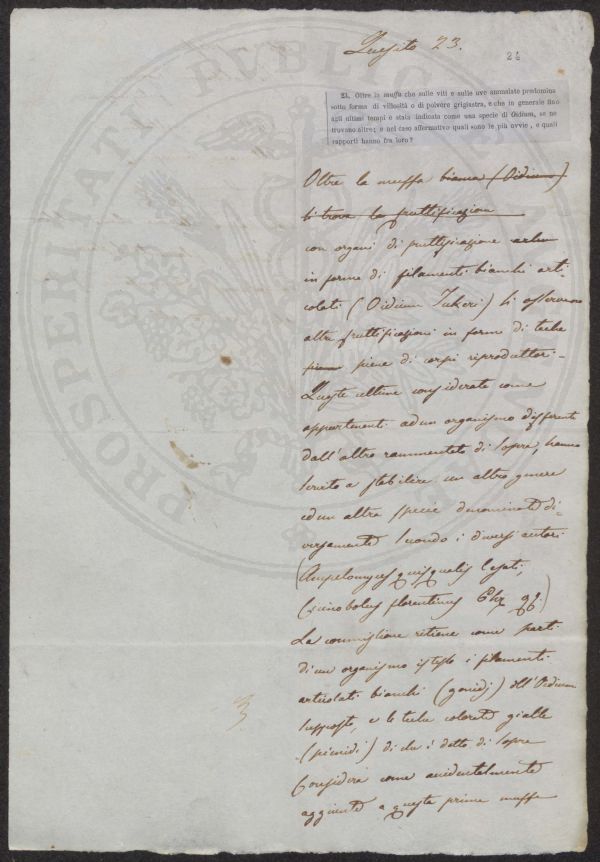 Quesito 23.
24
23. Oltre la muffa che sulle viti e sulle uve ammalate predomina
sotto forma di villosità o di polvere grigiastra, e che in generale fino
agli ultimi tempi è stata indicata come una specie di Oidium, se ne
trovano altre; e nel caso affermativo quali sono le più ovvie, e quali
rapporti hanno fra loro?
Oltre la muffa bianca (Oidium)
si trova la fruttificazione
con organi di fruttificazione
in forma di filamenti bianchi arti-
colati (Oidium Tukeri) si osservano
altre fruttificazioni in forma di teche
piene di corpi riproduttori -
Queste ultime considerate come
appartenenti ad un organismo differente
dall'altro rammentato di sopra, hanno
servito a stabilire un altro genere
ed un altra specie denominate di-
versamente secondo i diversi autori
(Ampelomyces quisqualis Cesati,
Cicinobolus florentinus Ehr
La commissione ritiene come parti
di un organismo istesso i filamenti
articolati bianchi (gonidj) dell'Oidium
supposto, e le teche colorate gialle
(picnidi) di che è detto di sopra
Considera come accidentalmente
aggiunte a questa prima muffa
3
PROSPERITATI PUBLICAE